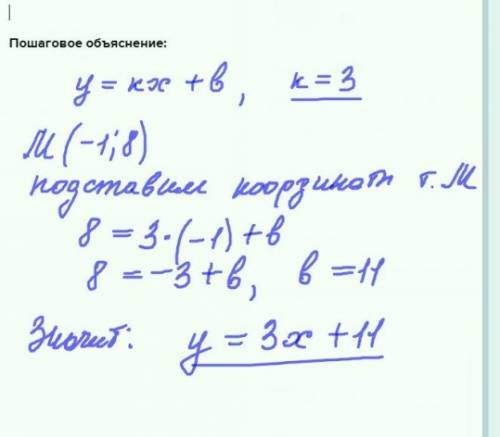 Пошаговое объяснение:
y = kx + b, k = 3
M (-1; 8)
подставим координаты т. M
8 = 3·(-1) + b
8 = -3 + b, b = 11
Значит: y = 3x + 11